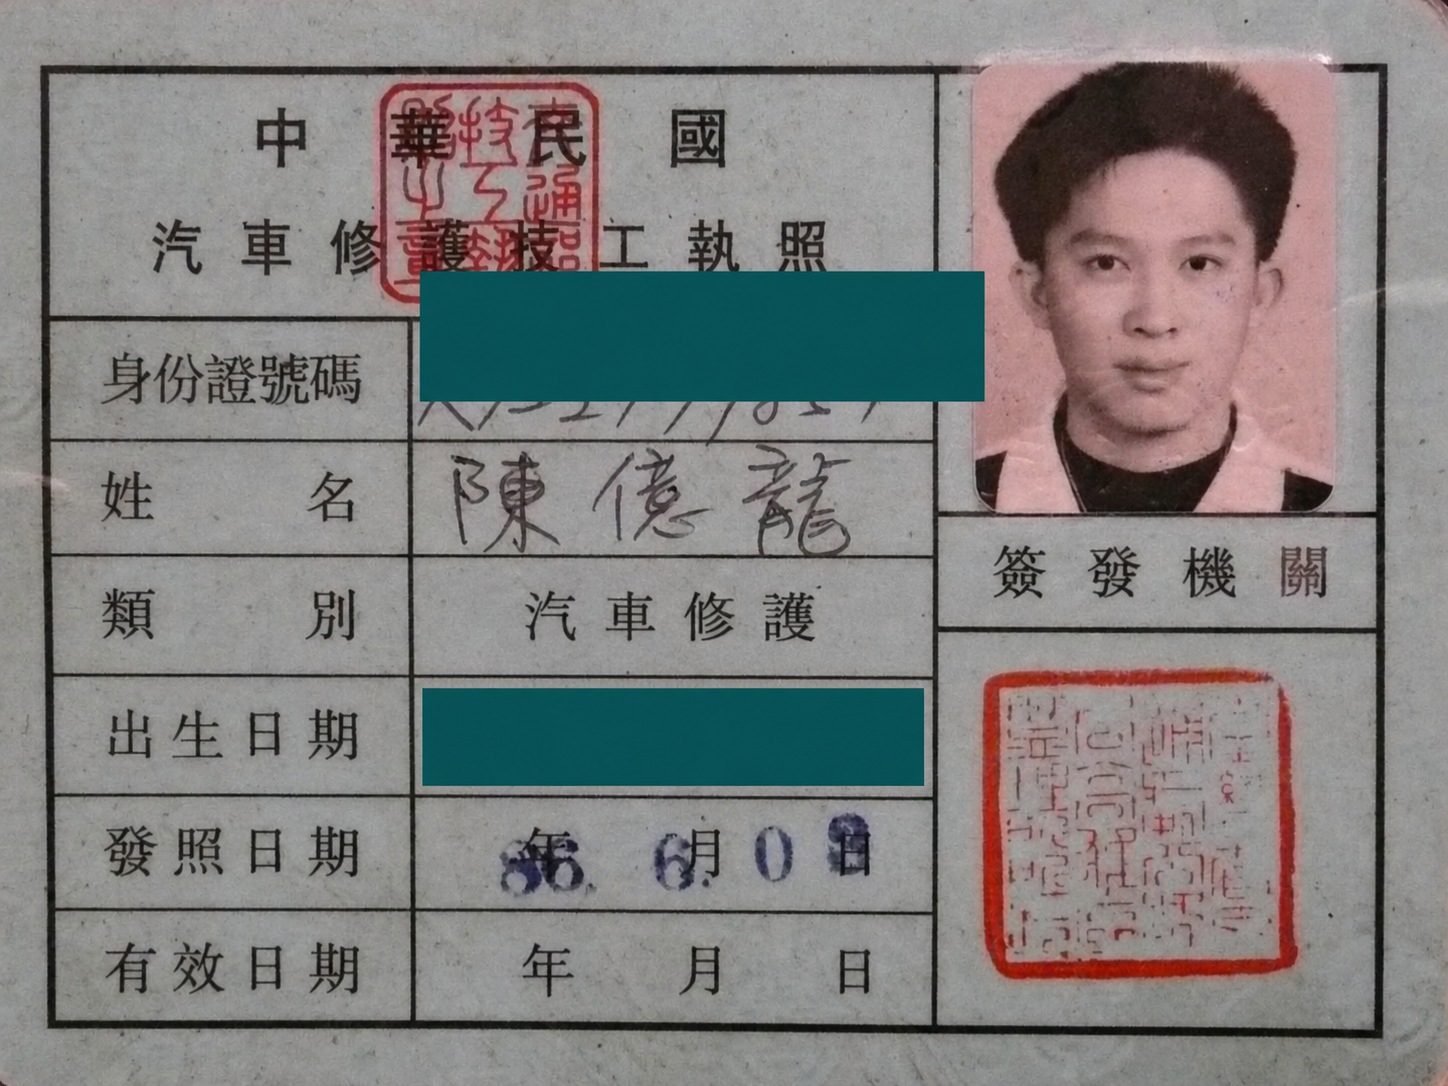 中華民國
汽車修護技工執照
身份證號碼
姓名 陳億龍
類別 汽車修護
出生日期
發照日期 86.年 6.月 0 日
有效日期 年 月 日
簽發機關